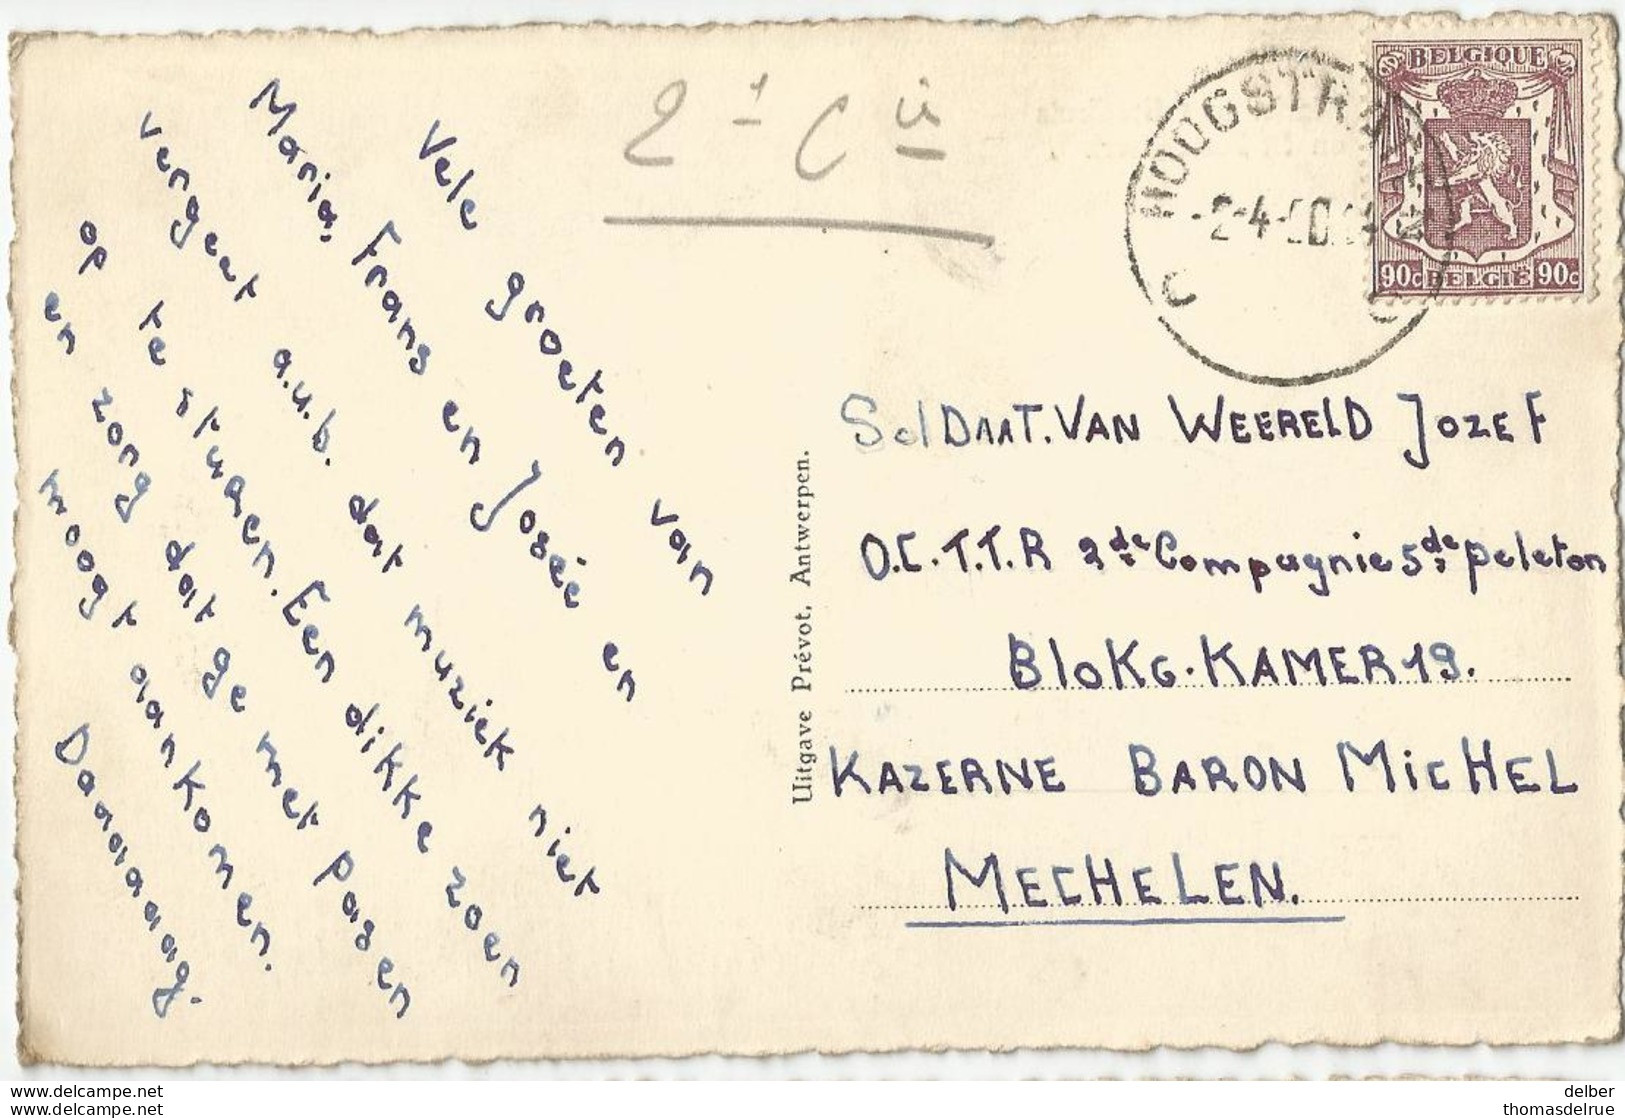 2e Cie
HOOGSTRATEN
-2-4-50
BELGIQUE
90c BELGIE 90c
Vele groeten van
Maria, Frans en Josée en
vergeet a.u.b. dat muziek niet
op te sturen. Een dikke zoen
en zorg dat ge met pasen
moogt aankomen.
Daaaaaag.
Uitgave Prévot, Antwerpen.
SolDAAT. VAN WEERELD JOZEF
O.C.T.T.R 2de Compagnie 5de peleton
BloKG. KAMER 19.
KAZERNE BARON MicHEL
MECHELEN.
delcampe.net
delber
thomasdelrue